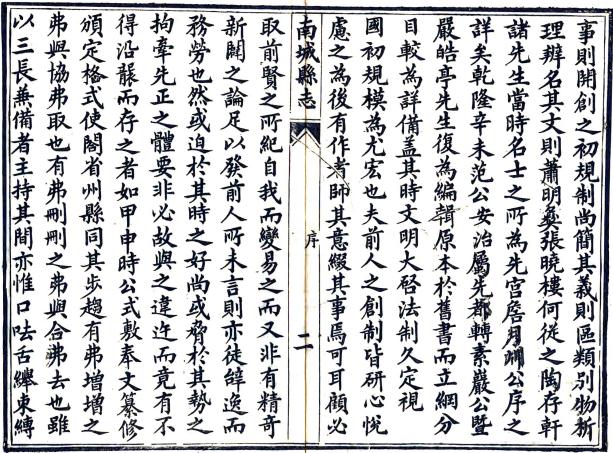 事則開創之初規制尚簡其義則區類別物析
理辨名其文則蕭明彝張曉樓何從之陶存軒
諸先生當時名士之所為先宮居月川公序之
詳矣乾隆辛未范公安治屬先都轉素巖公暨
嚴皓亭先生復為編輯原本於舊書而立綱分
目較為詳備蓋其時文明大啓法制久定視
國初規模為尤宏也夫前人之創制皆研心悅
慮之為後有作者師其意綴其事焉可耳顧必
南城縣志
序
二
取前賢之所紀自我而變易之而又非有精奇
新闢之論足以發前人所未言則亦徒辭逸而
務勞也然或迫於其時之好尚或脅於其勢之
拘牽先正之體要非必故與之違迕而竟有不
得沿襲而存之者如甲申時公式敷奉文纂修
頒定格式使閤省州縣同其步趨有弗增增之
弗與協弗取也有弗刪刪之弗與合弗去也雖
以三長兼備者主持其間亦惟口呿舌縴束縛